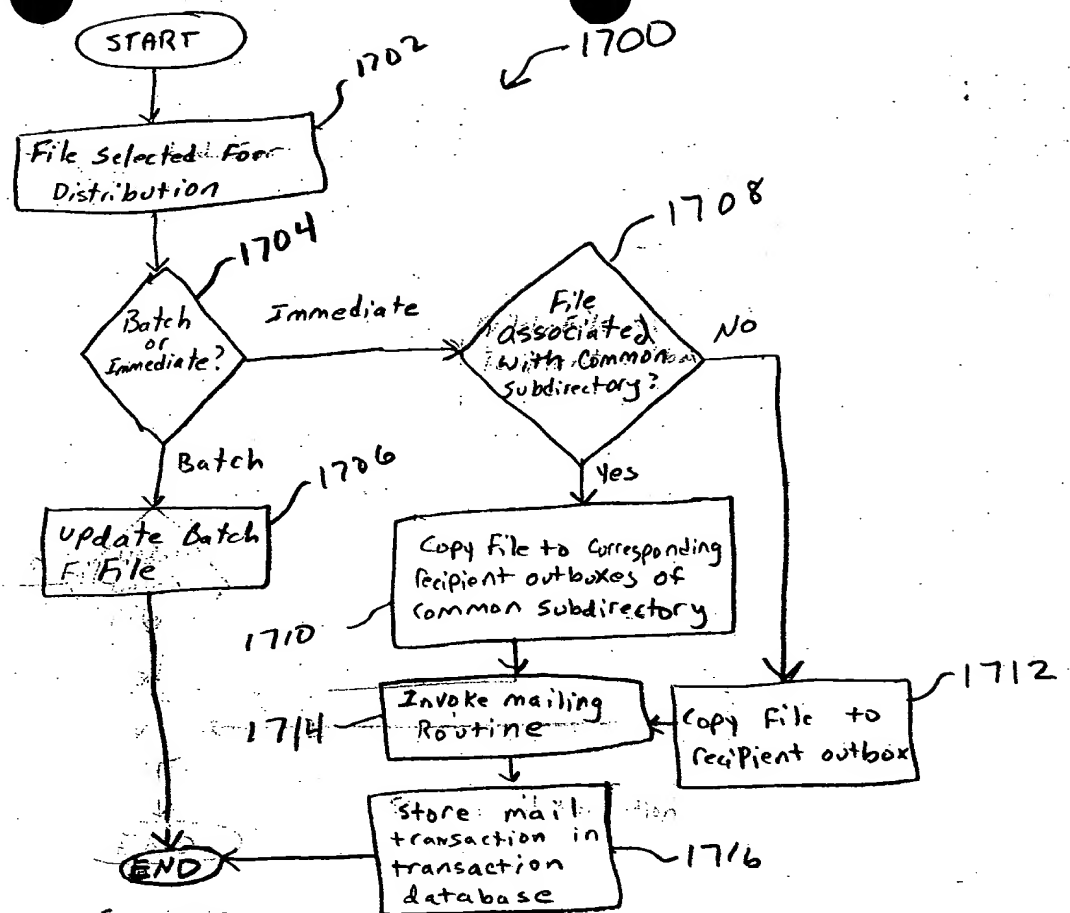 START
1700
1702
File Selected For
Distribution
1704
Batch
or
Immediate?
Immediate
1708
File
associated
with Common
Subdirectory?
No
Batch
1706
Update Batch
File
Yes
Copy File to Corresponding
recipient outboxes of
common subdirectory
1710
Invoke mailing
Routine
1714
Copy File to
recipient outbox
1712
Store mail
transaction in
transaction
database
1716
END